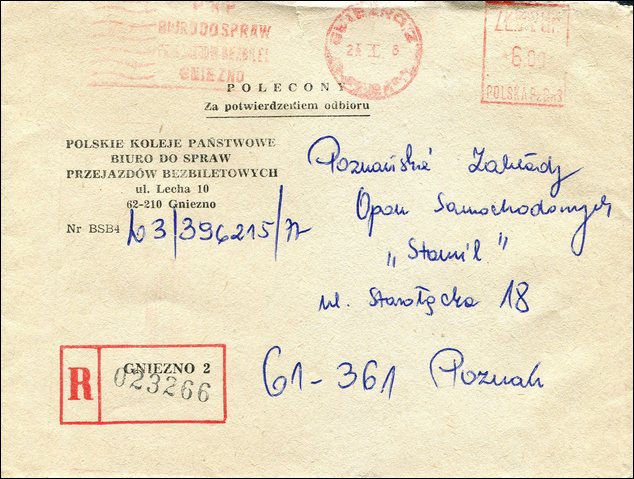 PKP
BIURO DO SPRAW
GNIEZNO
GNIEZNO 2
6.00
POLSKA
POLECONY
Za potwierdzeniem odbioru
POLSKIE KOLEJE PAŃSTWOWE
BIURO DO SPRAW
PRZEJAZDÓW BEZBILETOWYCH
ul. Lecha 10
62-210 Gniezno
Nr BSB4 L03/396215/77
Poznańskie Zakłady
Opon Samochodowych
„Stomil"
ul. Starołęcka 18
61-361 Poznań
R
GNIEZNO 2
023266